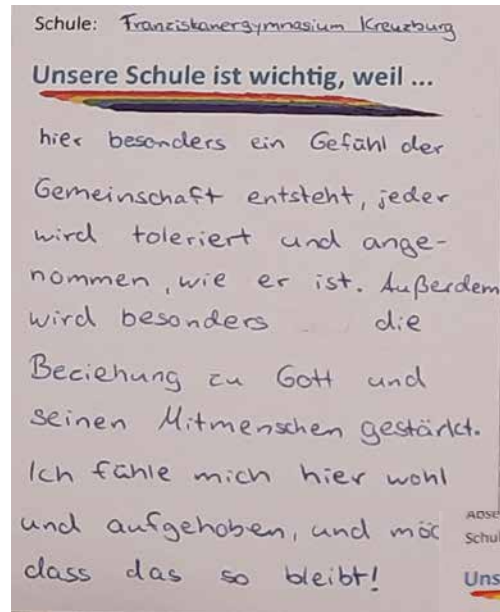 Schule: Franziskanergymnasium Kreuzburg
Unsere Schule ist wichtig, weil ...
hier besonders ein Gefühl der
Gemeinschaft entsteht, jeder
wird toleriert und ange-
nommen, wie er ist. Außerdem
wird besonders die
Beziehung zu Gott und
seinen Mitmenschen gestärkt.
Ich fühle mich hier wohl
und aufgehoben, und möc
dass das so bleibt!
Schul
Uns